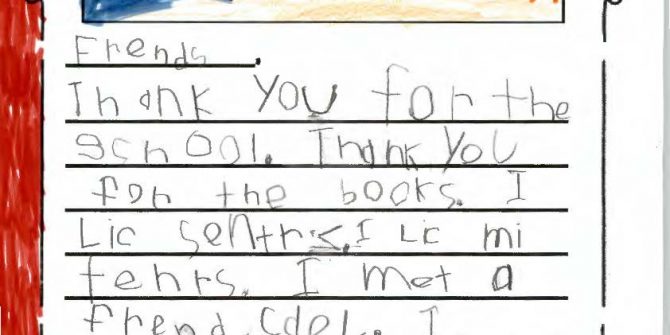 Frends,
Thank You for the
school. Thank You
for the books. I
Lic sentrs. I Lic mi
tehrs. I met a
frend. I